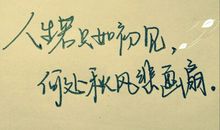 人生若只如初见，
何处秋风悲画扇.